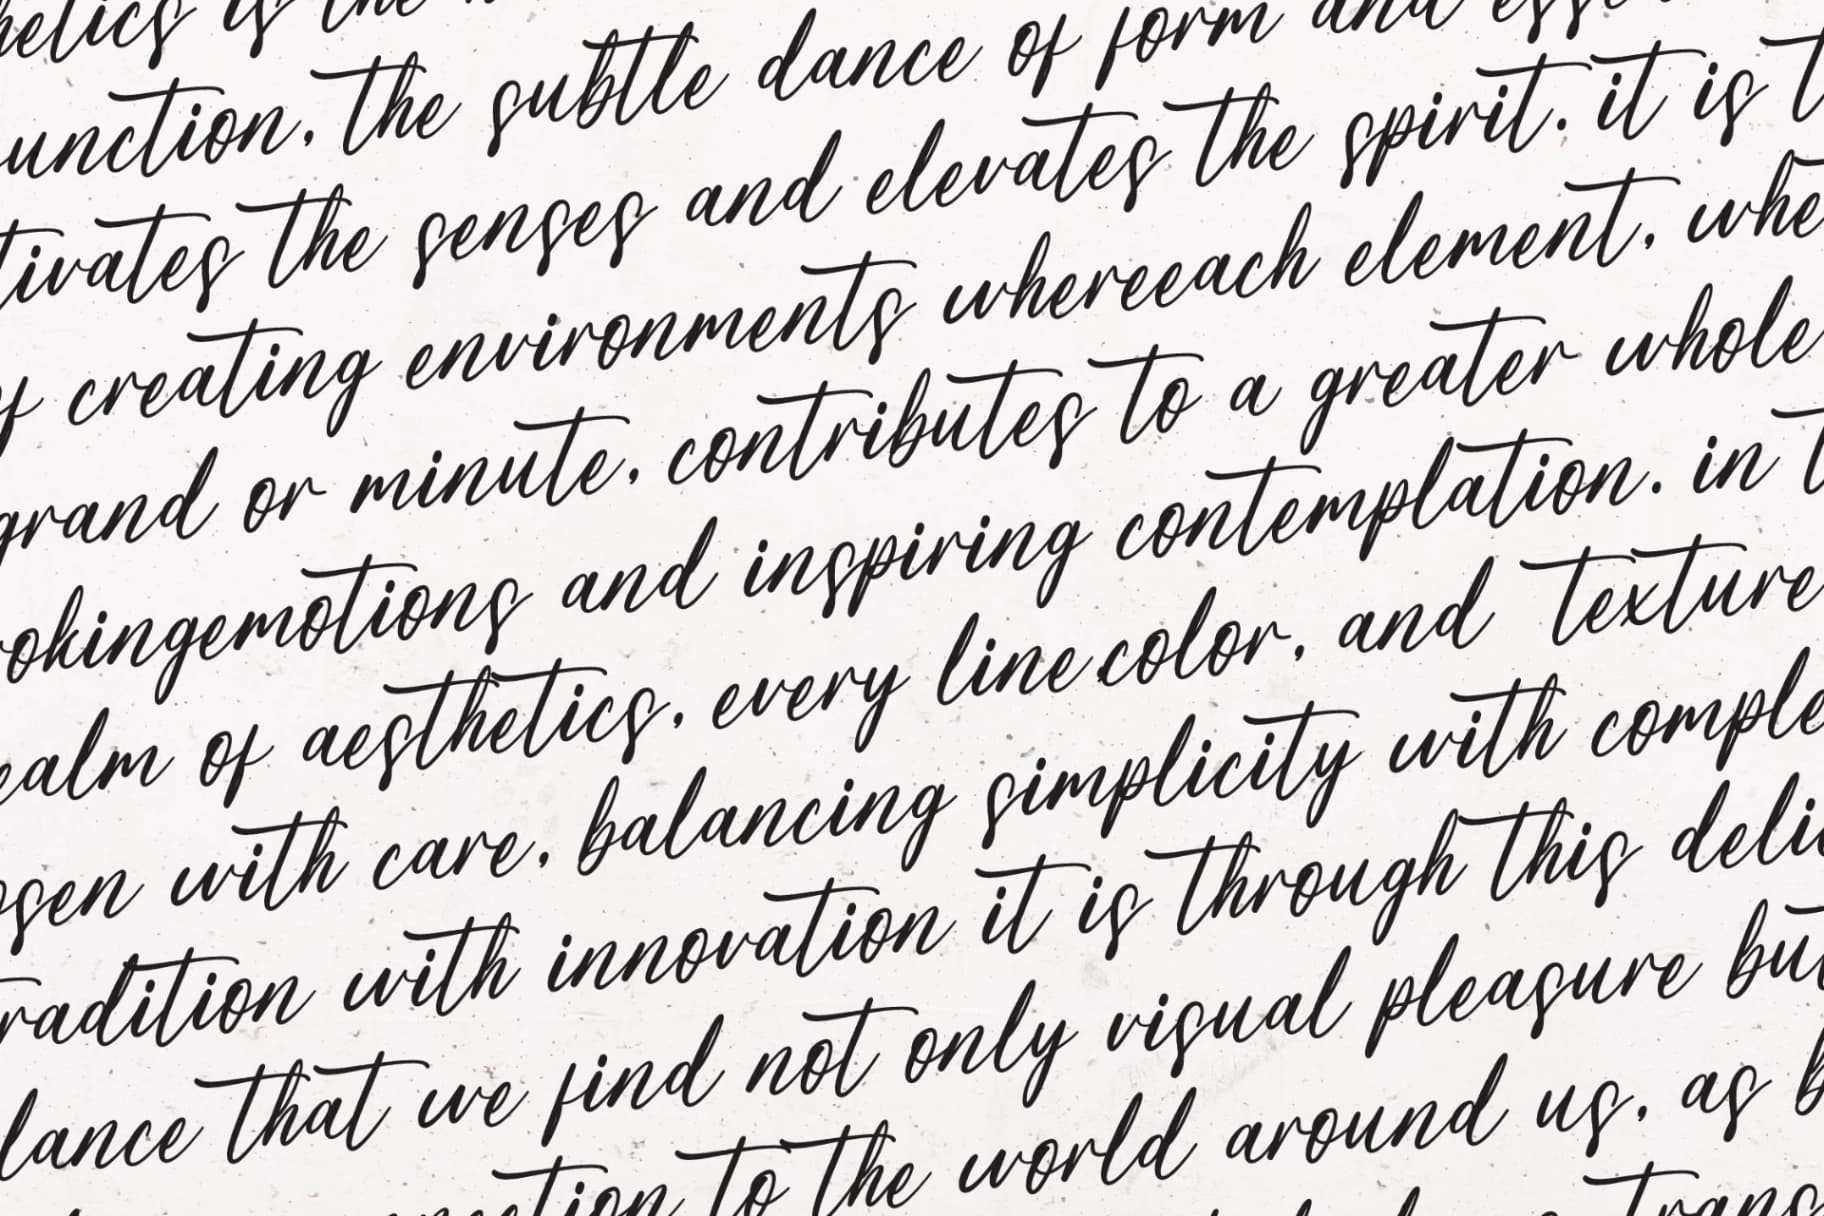 hetics is the
unction, the subtle dance of form and esse
tivates the senses and elevates the spirit. it is t
f creating environments whereeach element, whe
grand or minute, contributes to a greater whole
okingemotions and inspiring contemplation. in t
ealm of aesthetics, every line,color, and texture
osen with care, balancing simplicity with comple
radition with innovation it is through this deli
lance that we find not only visual pleasure but
nection to the world around us, as b
trans